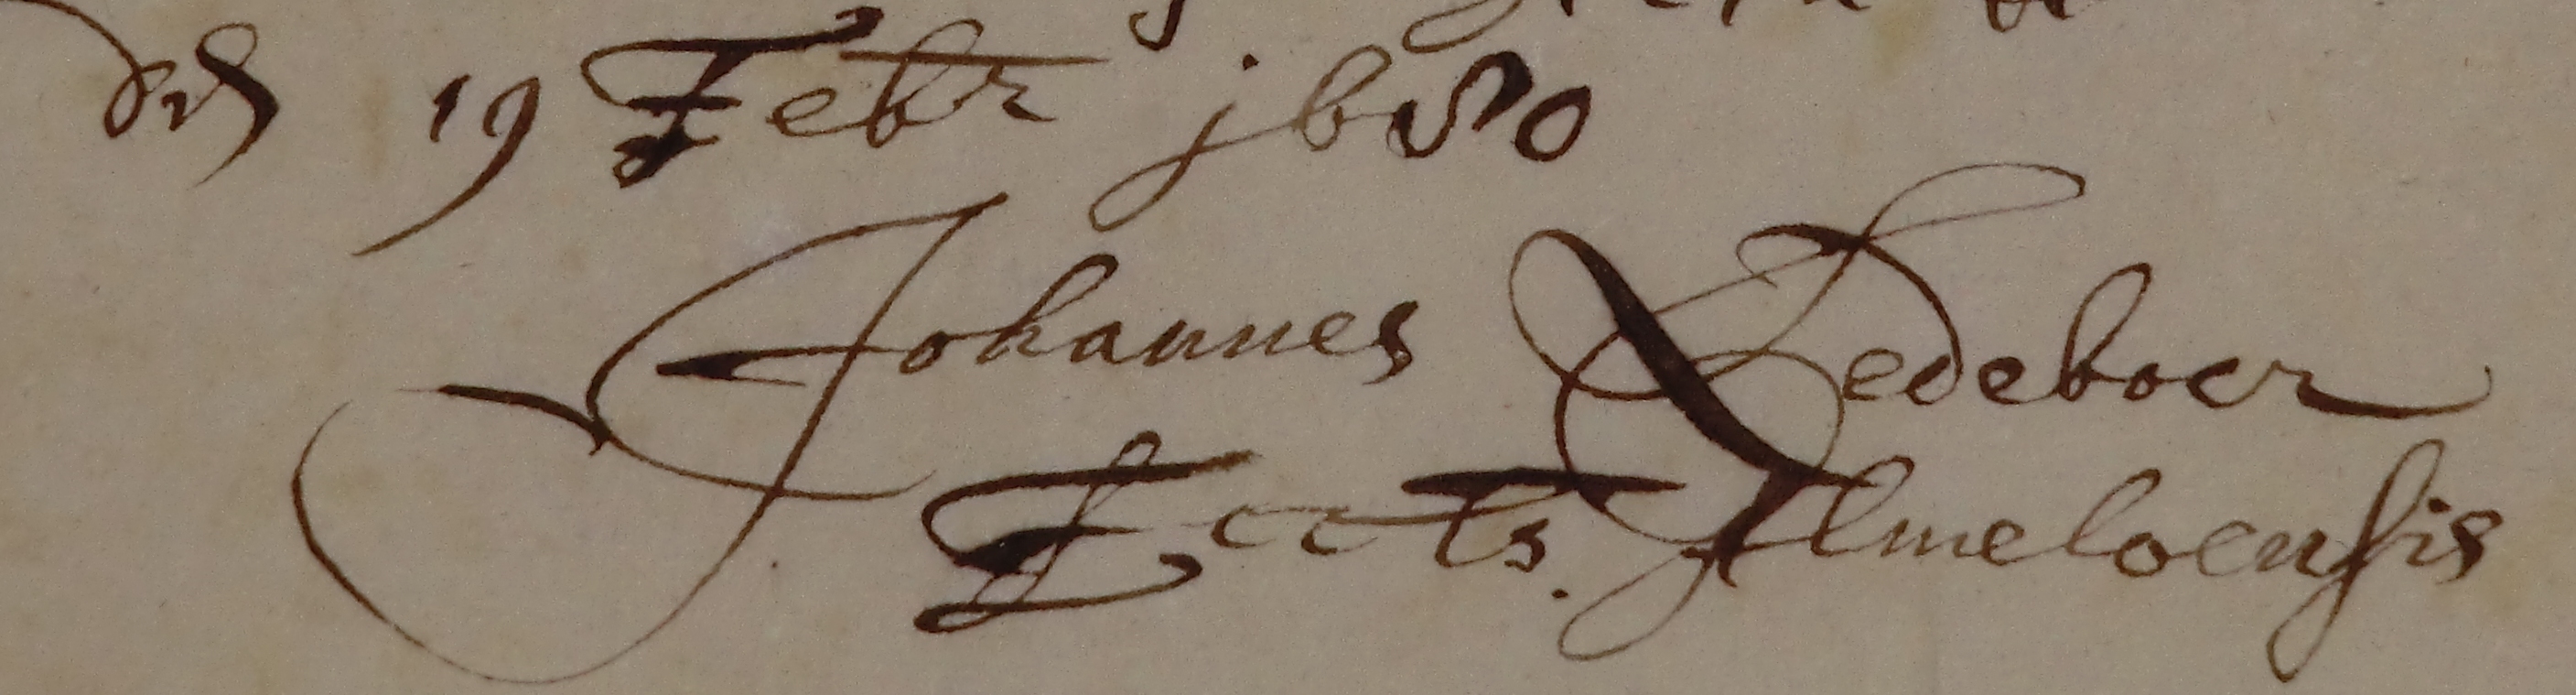 den 19 Febr j680
Johannes Ledeboer
Eccls. Almeloensis